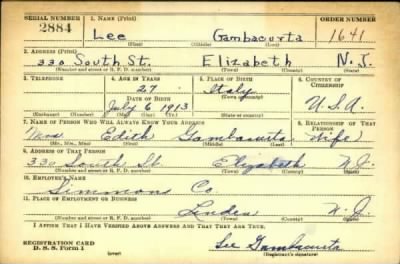 SERIAL NUMBER 1. NAME (Print) ORDER NUMBER
2884 Lee Gambacurta 1641
(First) (Middle) (Last)
2. ADDRESS (Print)
330 South St. Elizabeth N.J.
(Number and street or R. F. D. number) (Town) (County) (State)
3. TELEPHONE 4. AGE IN YEARS 5. PLACE OF BIRTH 6. COUNTRY OF CITIZENSHIP
27 Italy
DATE OF BIRTH (Town or county)
July 6 1913 U.S.A.
(Exchange) (No.) (Mo.) (Day) (Yr.) (State or country)
7. NAME OF PERSON WHO WILL ALWAYS KNOW YOUR ADDRESS 8. RELATIONSHIP OF THAT PERSON
Mrs Edith Gambacurta Wife
(Mr., Mrs., Miss) (First) (Middle) (Last)
9. ADDRESS OF THAT PERSON
330 South St. Elizabeth N.J.
(Number and street or R. F. D. number) (Town) (County) (State)
10. EMPLOYER'S NAME
Simmons Co.
11. PLACE OF EMPLOYMENT OR BUSINESS
Linden N.J.
(Number and street or R. F. D. number) (Town) (County) (State)
I AFFIRM THAT I HAVE VERIFIED ABOVE ANSWERS AND THAT THEY ARE TRUE.
REGISTRATION CARD
D. S. S. Form 1 (over) Lee Gambacurta
(Registrant's signature)